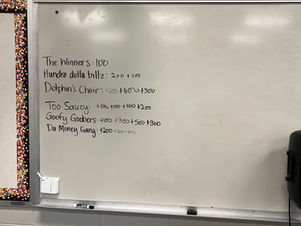 The Winners: 100
Hundo dolla billz: 200 + 500
Dolphin's Choir: +200 +600 +300
Too Saucy: +100 +100 +100 +200
Goofy Goobers: +100 +300 +500 +300
Da Money Gang: +200